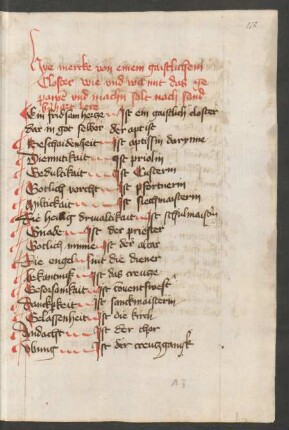 Hye mercke von einem gaistlichem
Closter wie und wa mit das ge
und machn solt nach sand
lere
Ein fridsam hercze Ist ein gaistlich closter
dar in got selber der apt ist
Beschaidenheit Ist aptissin darynne
Diemutikait Ist priolin
Gedultikait Ist Custerin
Gotlich vorcht Ist pfortnerin
Ist siechmaisterin
Die heilig drivaltikait Ist schulmaister
Gnade Ist der priester
Gotlich minne Ist der altar
Die engel sint die diener
Bekantnuß Ist das creucze
Gehorsamkait Ist
Danckperkeit Ist sanckmaisterin
Gelassenheit Ist die kirch
Andacht Ist der chor
Vbung Ist der creuczgangk